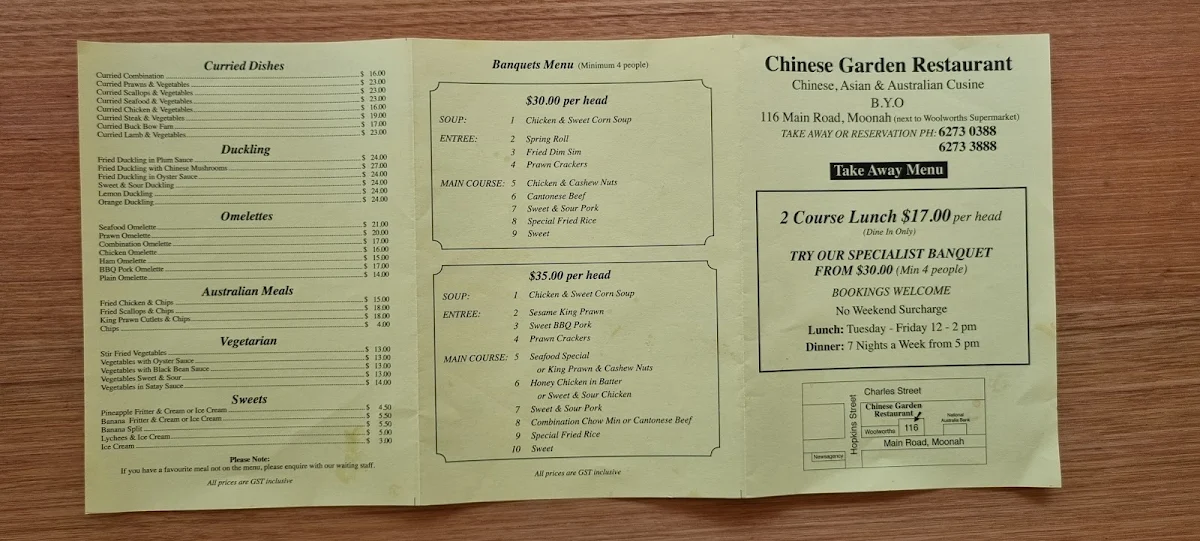 Curried Dishes
Curried Combination $ 16.00
Curried Prawns & Vegetables $ 23.00
Curried Scallops & Vegetables $ 23.00
Curried Seafood & Vegetables $ 23.00
Curried Chicken & Vegetables $ 16.00
Curried Steak & Vegetables $ 19.00
Curried Buck Bow Fam $ 17.00
Curried Lamb & Vegetables $ 23.00
Duckling
Fried Duckling in Plum Sauce $ 24.00
Fried Duckling with Chinese Mushrooms $ 27.00
Fried Duckling in Oyster Sauce $ 24.00
Sweet & Sour Duckling $ 24.00
Lemon Duckling $ 24.00
Orange Duckling $ 24.00
Omelettes
Seafood Omelette $ 21.00
Prawn Omelette $ 20.00
Combination Omelette $ 17.00
Chicken Omelette $ 16.00
Ham Omelette $ 15.00
BBQ Pork Omelette $ 17.00
Plain Omelette $ 14.00
Australian Meals
Fried Chicken & Chips $ 15.00
Fried Scallops & Chips $ 18.00
King Prawn Cutlets & Chips $ 18.00
Chips $ 4.00
Vegetarian
Stir Fried Vegetables $ 13.00
Vegetables with Oyster Sauce $ 13.00
Vegetables with Black Bean Sauce $ 13.00
Vegetables Sweet & Sour $ 13.00
Vegetables in Satay Sauce $ 14.00
Sweets
Pineapple Fritter & Cream or Ice Cream $ 4.50
Banana Fritter & Cream or Ice Cream $ 5.50
Banana Split $ 5.50
Lychees & Ice Cream $ 5.00
Ice Cream $ 3.00
Please Note:
If you have a favourite meal not on the menu, please enquire with our waiting staff.
All prices are GST inclusive
Banquets Menu (Minimum 4 people)
$30.00 per head
SOUP: 1 Chicken & Sweet Corn Soup
ENTREE: 2 Spring Roll
3 Fried Dim Sim
4 Prawn Crackers
MAIN COURSE: 5 Chicken & Cashew Nuts
6 Cantonese Beef
7 Sweet & Sour Pork
8 Special Fried Rice
9 Sweet
$35.00 per head
SOUP: 1 Chicken & Sweet Corn Soup
ENTREE: 2 Sesame King Prawn
3 Sweet BBQ Pork
4 Prawn Crackers
MAIN COURSE: 5 Seafood Special
or King Prawn & Cashew Nuts
6 Honey Chicken in Batter
or Sweet & Sour Chicken
7 Sweet & Sour Pork
8 Combination Chow Min or Cantonese Beef
9 Special Fried Rice
10 Sweet
All prices are GST inclusive
Chinese Garden Restaurant
Chinese, Asian & Australian Cusine
B.Y.O
116 Main Road, Moonah (next to Woolworths Supermarket)
TAKE AWAY OR RESERVATION PH: 6273 0388
6273 3888
Take Away Menu
2 Course Lunch $17.00 per head
(Dine In Only)
TRY OUR SPECIALIST BANQUET
FROM $30.00 (Min 4 people)
BOOKINGS WELCOME
No Weekend Surcharge
Lunch: Tuesday - Friday 12 - 2 pm
Dinner: 7 Nights a Week from 5 pm
Charles Street
Hopkins Street
Chinese Garden
Restaurant
National
Australia Bank
Woolworths
116
Main Road, Moonah
Newsagency